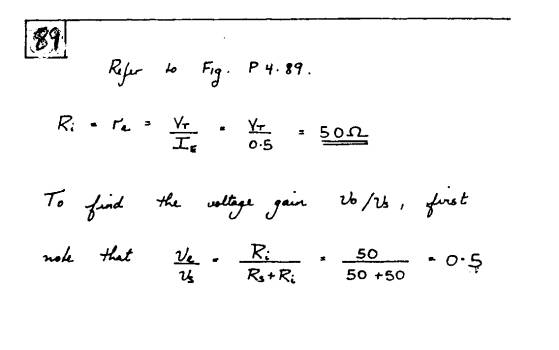 89
Refer to Fig. P 4.89.
Ri = re = VT/IE = VT/0.5 = 50Ω
To find the voltage gain vo/vs, first
note that ve/vs = Ri/(Rs+Ri) = 50/(50+50) = 0.5